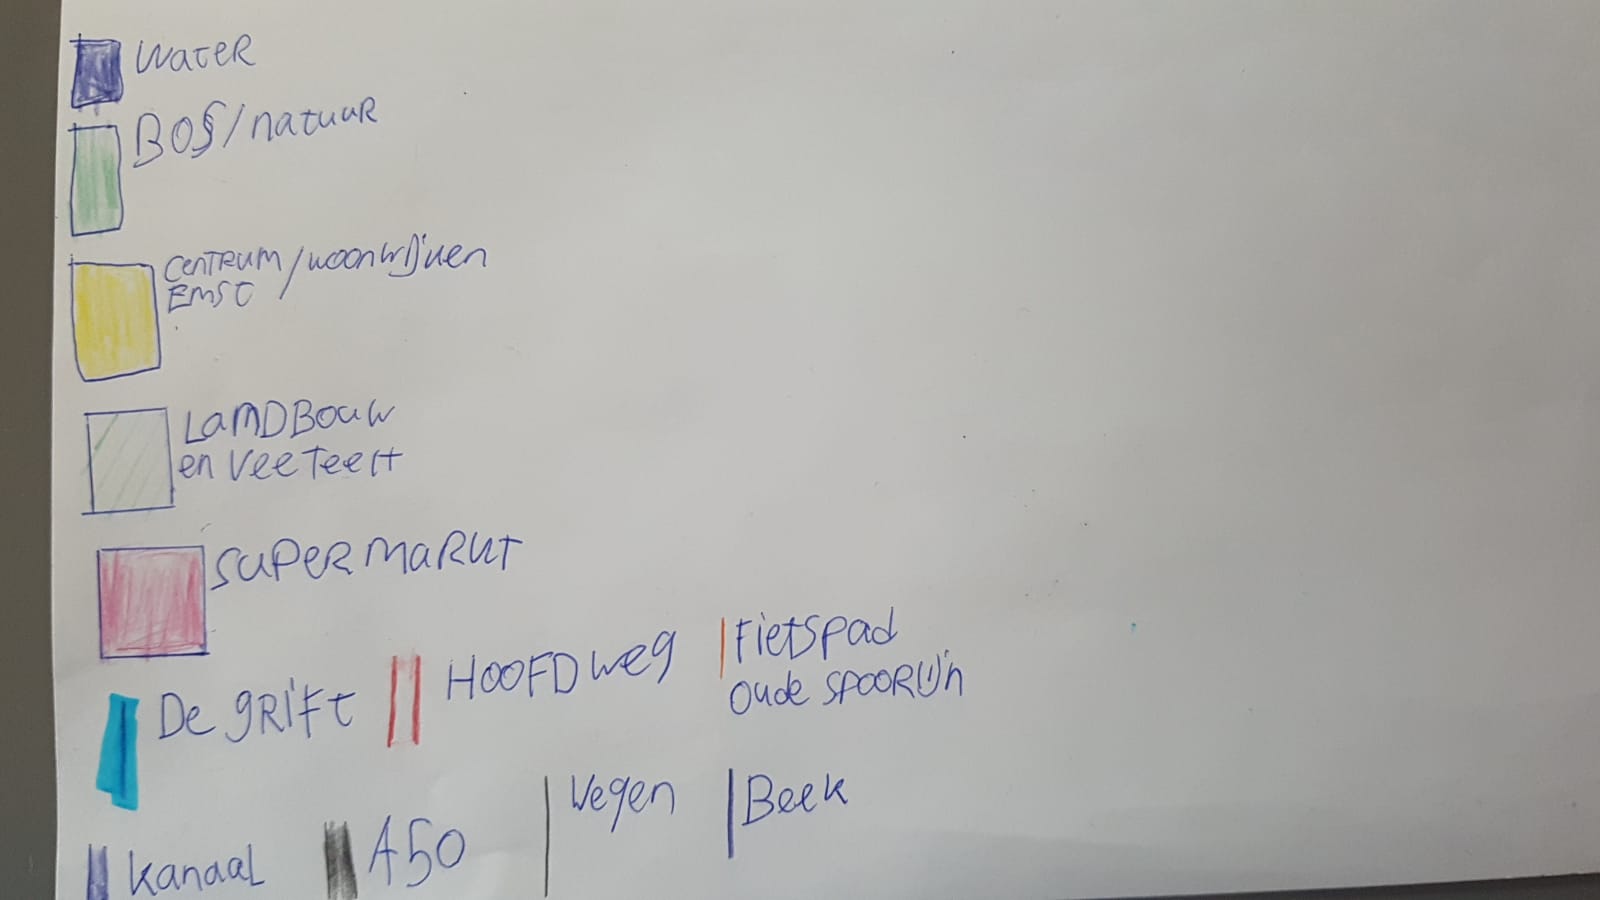 Water
BOS/natuur
CenTRUM/woonwijken
EMST
LaNDBouw
en VeeTeelt
SUPERMARKT
De gRift
HOOFDweg
Fietspad
oude SPOORlijn
Kanaal
A50
Wegen
Beek